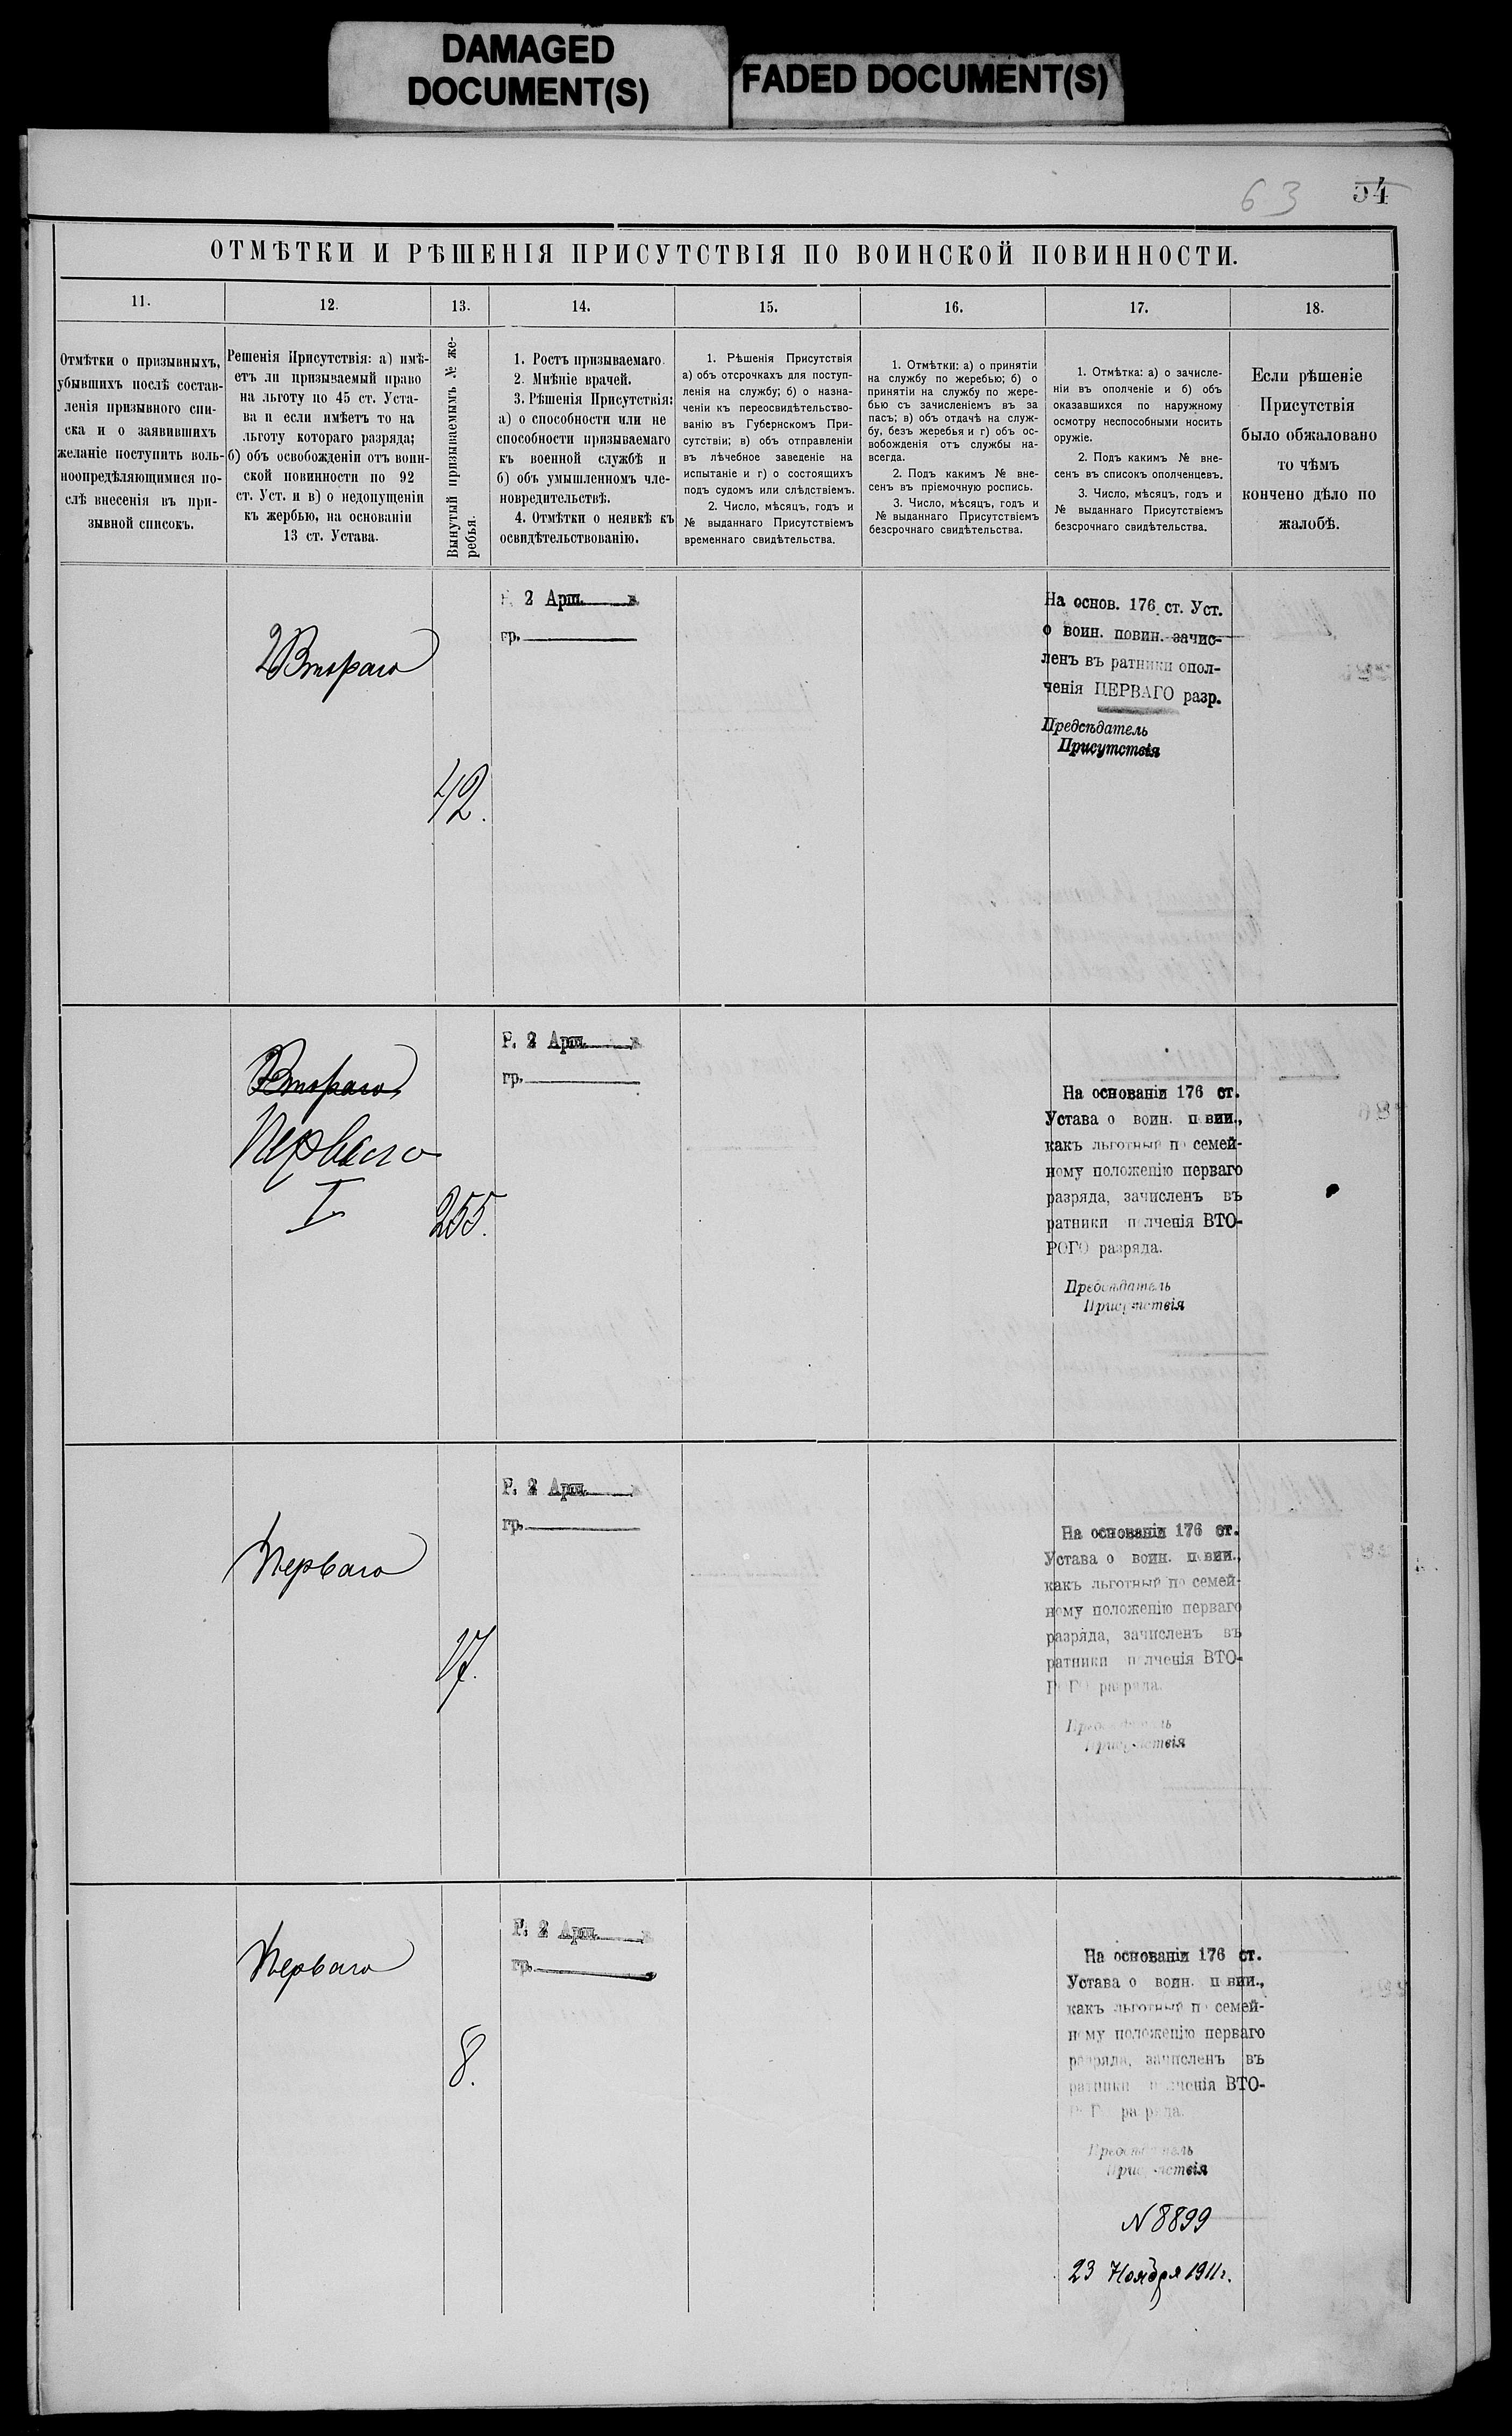 DAMAGED
DOCUMENT(S)
FADED DOCUMENT(S)
63 54
ОТМѢТКИ И РѢШЕНІЯ ПРИСУТСТВІЯ ПО ВОИНСКОЙ ПОВИННОСТИ.
11.
12.
13.
14.
15.
16.
17.
18.
Отмѣтки о призывныхъ,
убывшихъ послѣ состав-
ленія призывного спи-
ска и о заявившихъ
желаніе поступить воль-
ноопредѣляющимися по-
слѣ внесенія въ при-
зывной списокъ.
Решенія Присутствія: а) имѣ-
етъ ли призываемый право
на льготу по 45 ст. Уста-
ва и если имѣетъ то на
льготу котораго разряда;
б) объ освобожденіи отъ воин-
ской повинности по 92
ст. Уст. и в) о недопущеніи
къ жербью, на основаніи
13 ст. Устава.
Вынутый призываемымъ № же-
ребья.
1. Ростъ призываемаго.
2. Мнѣніе врачей.
3. Рѣшенія Присутствія:
а) о способности или не
способности призываемаго
къ военной службѣ и
б) объ умышленномъ чле-
новредительствѣ.
4. Отмѣтки о неявкѣ къ
освидѣтельствованію.
1. Рѣшенія Присутствія
а) объ отсрочкахъ для поступ-
ленія на службу; б) о назна-
ченіи къ переосвидѣтельство-
ванію въ Губернскомъ При-
сутствіи; в) объ отправленіи
въ лѣчебное заведеніе на
испытаніе и г) о состоящихъ
подъ судомъ или слѣдствіемъ.
2. Число, мѣсяцъ, годъ и
№ выданнаго Присутствіемъ
временнаго свидѣтельства.
1. Отмѣтки: а) о принятіи
на службу по жеребью; б) о
принятіи на службу по жере-
бью съ зачисленіемъ въ за
пасъ; в) объ отдачѣ на служ-
бу, безъ жеребья и г) объ ос-
вобожденія отъ службы на-
всегда.
2. Подъ какимъ № вне-
сенъ въ пріемочную роспись.
3. Число, мѣсяцъ, годъ и
№ выданнаго Присутствіемъ
безсрочнаго свидѣтельства.
1. Отмѣтка: а) о зачисле-
ніи въ ополченіе и б) объ
оказавшихся по наружному
осмотру неспособными носить
оружіе.
2. Подъ какимъ № вне-
сенъ въ списокъ ополченцевъ.
3. Число, мѣсяцъ, годъ и
№ выданнаго Присутствіемъ
безсрочнаго свидѣтельства.
Если рѣшеніе
Присутствія
было обжаловано
то чѣмъ
кончено дѣло по
жалобѣ.
2 Втораго
42.
2 Арш. в
гр.
На основ. 176 ст. Уст.
о воин. повин. зачис-
ленъ въ ратники опол-
ченія ПЕРВАГО разр.
Предсѣдатель
Присутствія
Втораго
Перваго
I
255.
Р. 2 Арш. в
гр.
На основаніи 176 ст.
Устава о воин. п вин.,
какъ льготный по семей-
ному положенію перваго
разряда, зачисленъ въ
ратники п лченія ВТО-
РОГО разряда.
Предсѣдатель
Присутствія
Перваго
17.
Р. 2 Арш. в
гр.
На основаніи 176 ст.
Устава о воин. п вин.,
какъ льготный по семей-
ному положенію перваго
разряда, зачисленъ въ
ратники п лченія ВТО-
РОГО разряда.
Предсѣдатель
Присутствія
Перваго
8.
Р. 2 Арш. в
гр.
На основаніи 176 ст.
Устава о воин. п вин.,
какъ льготный по семей-
ному положенію перваго
разряда, зачисленъ въ
ратники п лченія ВТО-
РОГО разряда.
Предсѣдатель
Присутствія
N 8899
23 Ноября 1911 г.